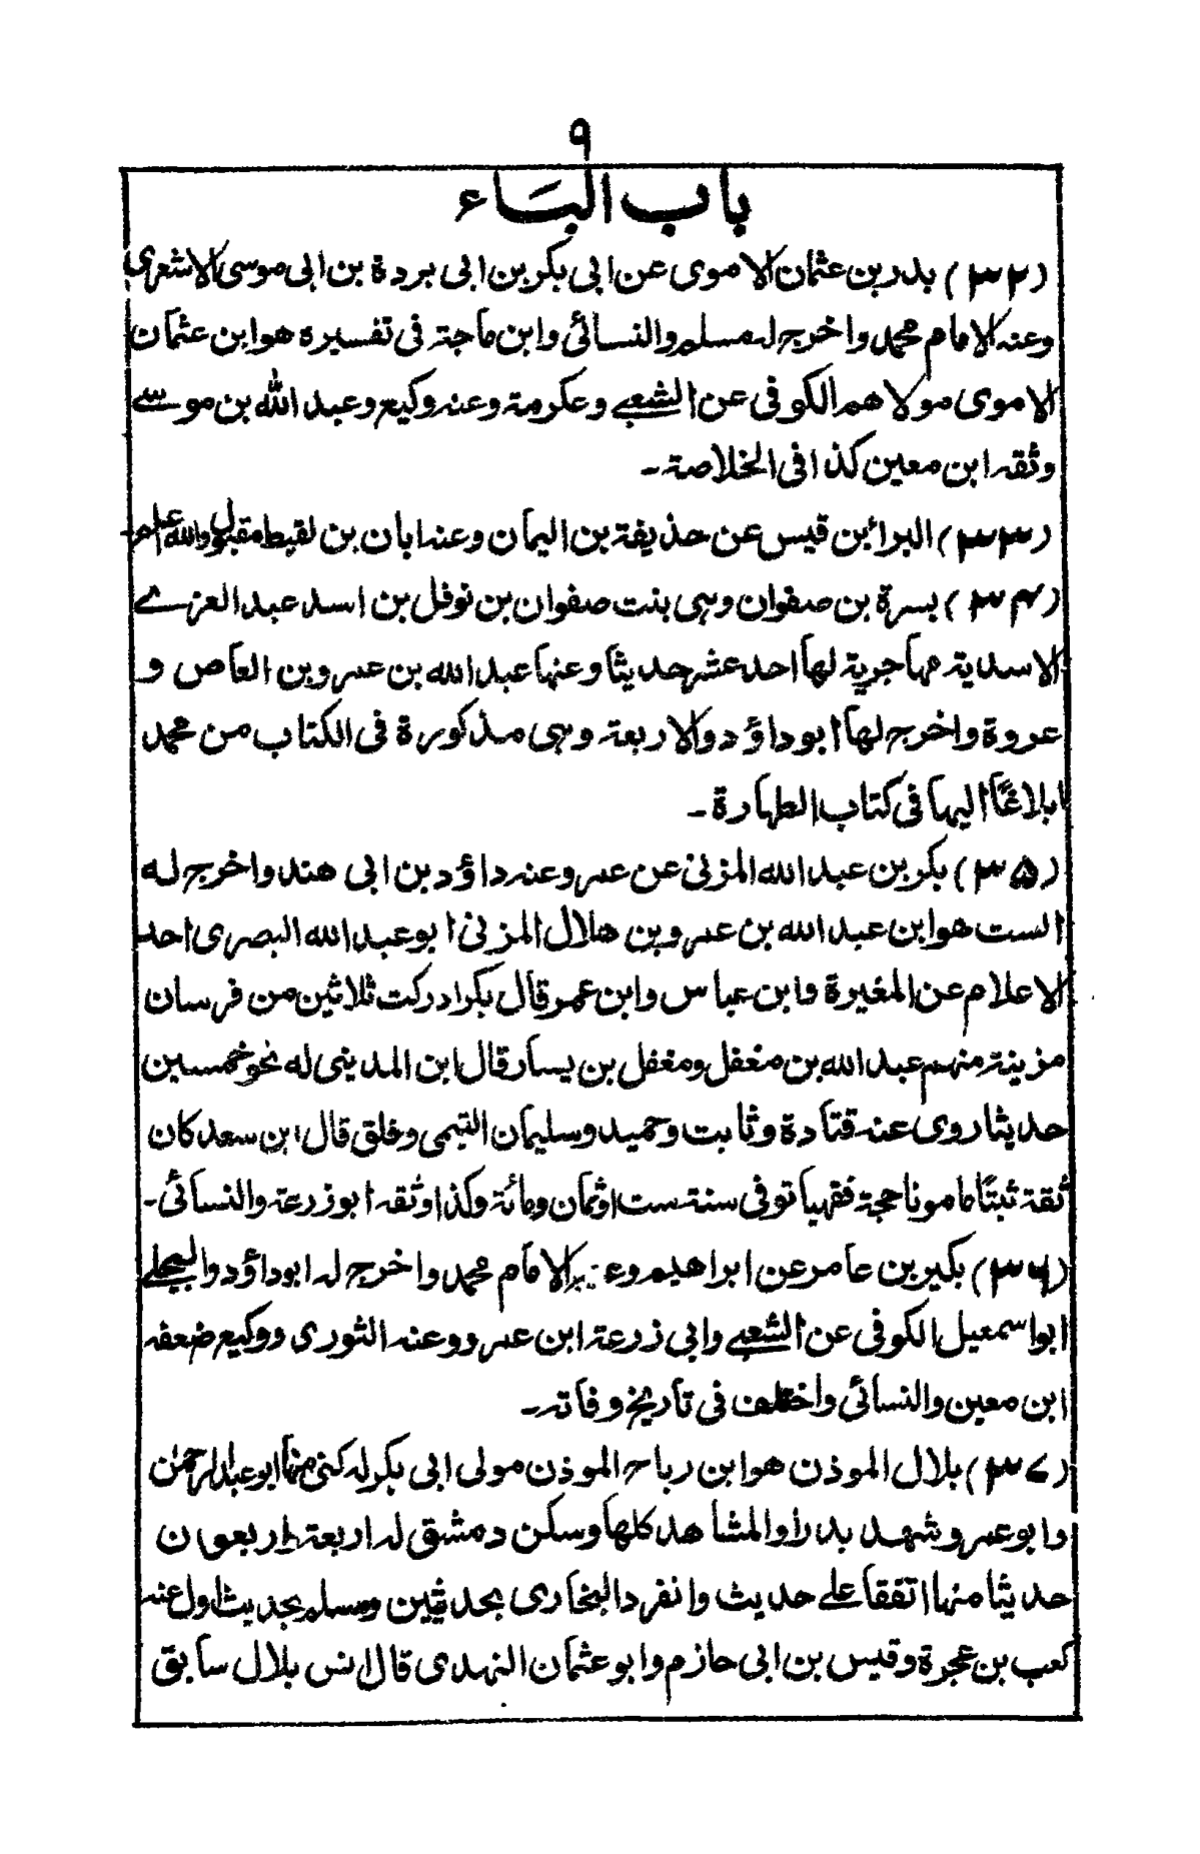 ۹
باب الباء
(۳۲) بدر بن عثمان الاموی عن ابی بکر بن ابی بردة بن ابی موسی الاشعری
وعنه الامام محمد واخرج له مسلم والنسائی وابن ماجة فی تفسیره هوابن عثمان
الاموی مولاهم الکوفی عن الشعبے وعکرمة وعنه وکیع وعبد الله بن موسے
وثقه ابن معین کذا فی الخلاصة۔
(۳۳) البرائبن قیس عن حذیفة بن الیمان وعنه ابان بن لقیط مقبل والله اعلم
(۳۴) بسرة بن صفوان وہی بنت صفوان بن نوفل بن اسد عبد العزے
الاسدیة مهاجریة لها احد عشر حدیثا وعنها عبد الله بن عمرو بن العاص و
عروة واخرج لها ابوداؤد والاربعة وہی مذکورة فی الکتاب من محمد
ابلاغا الیہا فی کتاب الطہارة۔
(۳۵) بکر بن عبد الله المزنی عن عمر وعنه داؤد بن ابی هند واخرج له
الست هوابن عبد الله بن عمرو بن هلال المزنی ابو عبد الله البصری احد
الاعلام عن المغیرة وابن عباس وابن عمر قال بکر ادرکت ثلاثین من فرسان
مزینة منهم عبد الله بن مغفل ومغفل بن یسار قال ابن المدینی له نحو خمسین
حدیثا روی عنه قتادة وثابت وحمید وسلیمان التیمی وخلق قال ابن سعد کان
ثقة ثبتًا مامونا حجة فقهیا توفی سنة ست اوثمان ومائة وکذا وثقه ابوزرعة والنسائی۔
(۳۶) بکیر بن عامر عن ابراهیم وعنه الامام محمد واخرج له ابوداؤد والبجلے
ابو اسمعیل الکوفی عن الشعبے وابی زرعة ابن عمرو وعنه الثوری ووکیع ضعفه
ابن معین والنسائی واختلف فی تاریخ وفاته۔
(۳۷) بلال الموذن هوابن رباح الموذن مولی ابی بکر له کنی منها ابو عبد الرحمٰن
وابو عمرو شهد بدرا والمشاهد کلها وسکن دمشق له اربعة اربعون
حدیثا منها اتفقا علے حدیث وانفرد البخاری بحدیثین ومسلم بحدیث اول عنه
کعب بن عجرة وقیس بن ابی حازم وابو عثمان النهدی قال انس بلال سابق